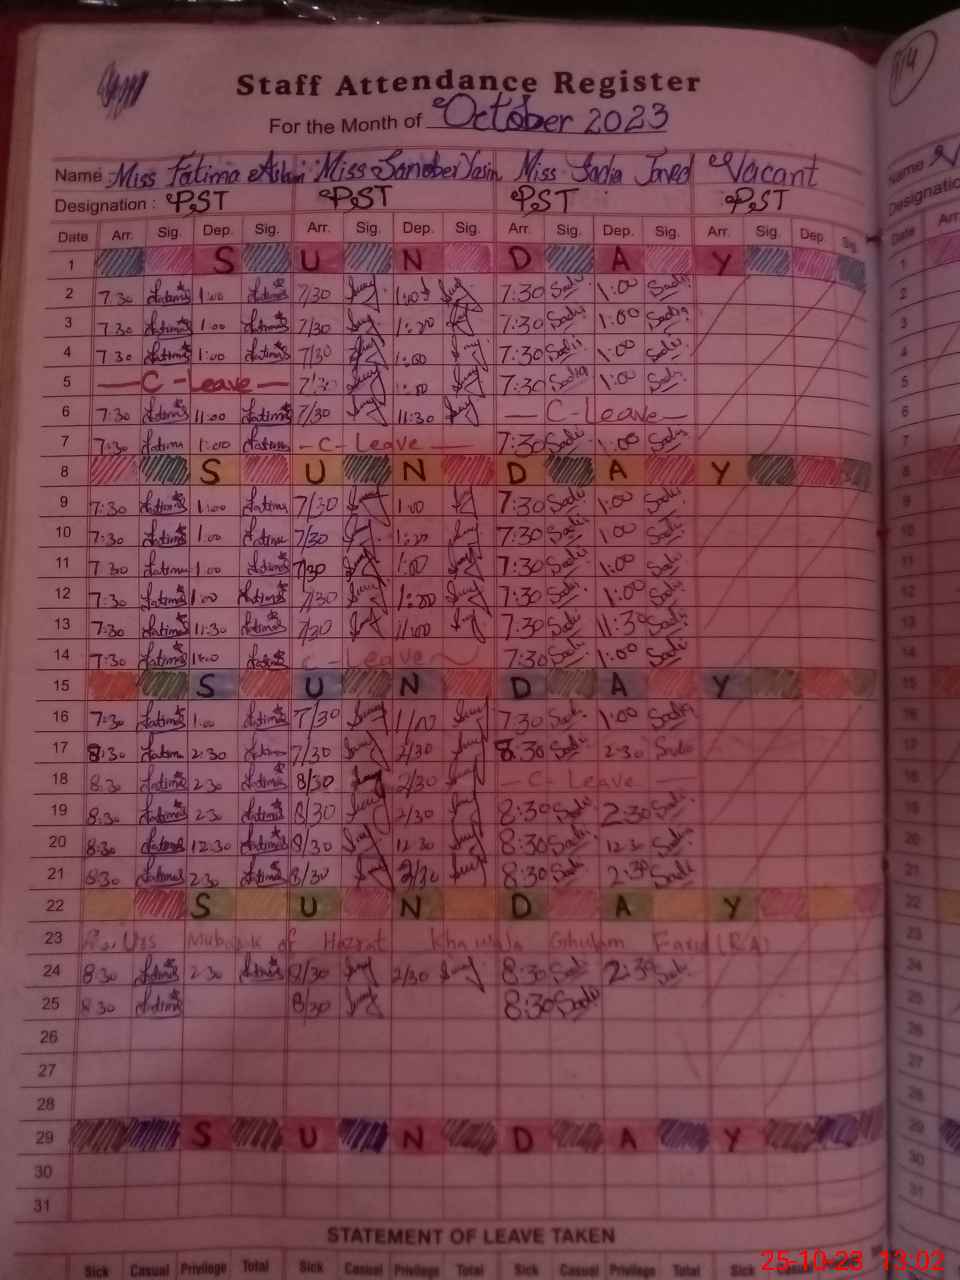 Staff Attendance Register
For the Month of October 2023
Name : Miss Fatima Aslam Miss Sanober Yasin Miss Sadia Javed Vacant
Designation : PST PST PST PST
Date Arr. Sig. Dep. Sig. Arr. Sig. Dep. Sig. Arr. Sig. Dep. Sig. Arr. Sig. Dep. Sig.
1 S U N D A Y
2 7:30 Fatima 1:00 Fatima 7/30 1:00 7:30 Sadi 1:00 Sadi
3 7:30 Fatima 1:00 Fatima 7/30 1:00 7:30 Sadi 1:00 Sadi
4 7:30 Fatima 1:00 Fatima 7/30 1:00 7:30 Sadi 1:00 Sadi
5 C-Leave 7/30 1:00 7:30 Sadia 1:00 Sadi
6 7:30 Fatima 11:00 Fatima 7/30 11:30 C-Leave
7 7:30 Fatima 1:00 Fatima C-Leave 7:30 Sadi 1:00 Sadi
8 S U N D A Y
9 7:30 Fatima 1:00 Fatima 7/30 1:00 7:30 Sadi 1:00 Sadi
10 7:30 Fatima 1:00 Fatima 7/30 1:00 7:30 Sadi 1:00 Sadi
11 7:30 Fatima 1:00 Fatima 7/30 1:00 7:30 Sadi 1:00 Sadi
12 7:30 Fatima 1:00 Fatima 7/30 1:00 7:30 Sadi 1:00 Sadi
13 7:30 Fatima 11:30 Fatima 7/30 11:00 7:30 Sadi 11:30 Sadi
14 7:30 Fatima 1:00 Fatima C-Leave 7:30 Sadi 1:00 Sadi
15 S U N D A Y
16 7:30 Fatima 1:00 Fatima 7/30 1/00 7:30 Sadi 1:00 Sadia
17 8:30 Fatima 2:30 Fatima 7/30 2/30 8:30 Sadi 2:30 Sadi
18 8:30 Fatima 2:30 Fatima 8/30 2/30 C-Leave
19 8:30 Fatima 2:30 Fatima 8/30 2/30 8:30 Sadi 2:30 Sadi
20 8:30 Fatima 12:30 Fatima 8/30 12:30 8:30 Sadi 12:30 Sadi
21 8:30 Fatima 2:30 Fatima 8/30 2/30 8:30 Sadi 2:30 Sadi
22 S U N D A Y
23 Urs Mubarak of Hazrat Khawaja Ghulam Farid (RA)
24 8:30 Fatima 2:30 Fatima 8/30 2/30 8:30 Sadi 2:30 Sadi
25 8:30 Fatima 8/30 8:30 Sadi
26
27
28
29 S U N D A Y
30
31
STATEMENT OF LEAVE TAKEN
Sick Casual Privilege Total Sick Casual Privilege Total Sick Casual Privilege Total Sick
25-10-23 13:02